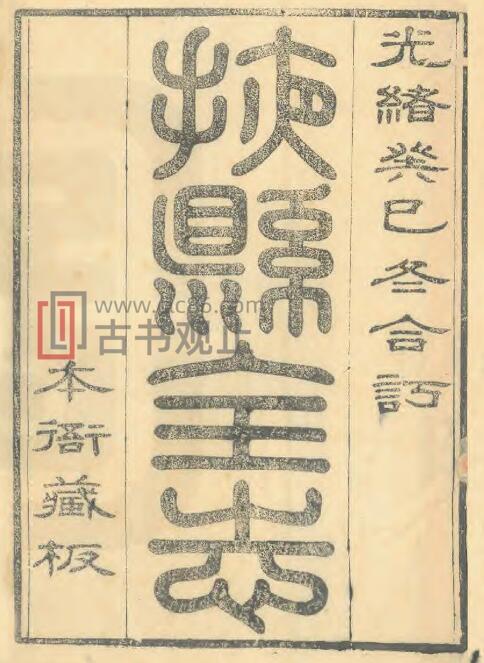 光緒癸巳冬合訂
掖縣全志
本衙藏板
www.gc86.com
古书观止